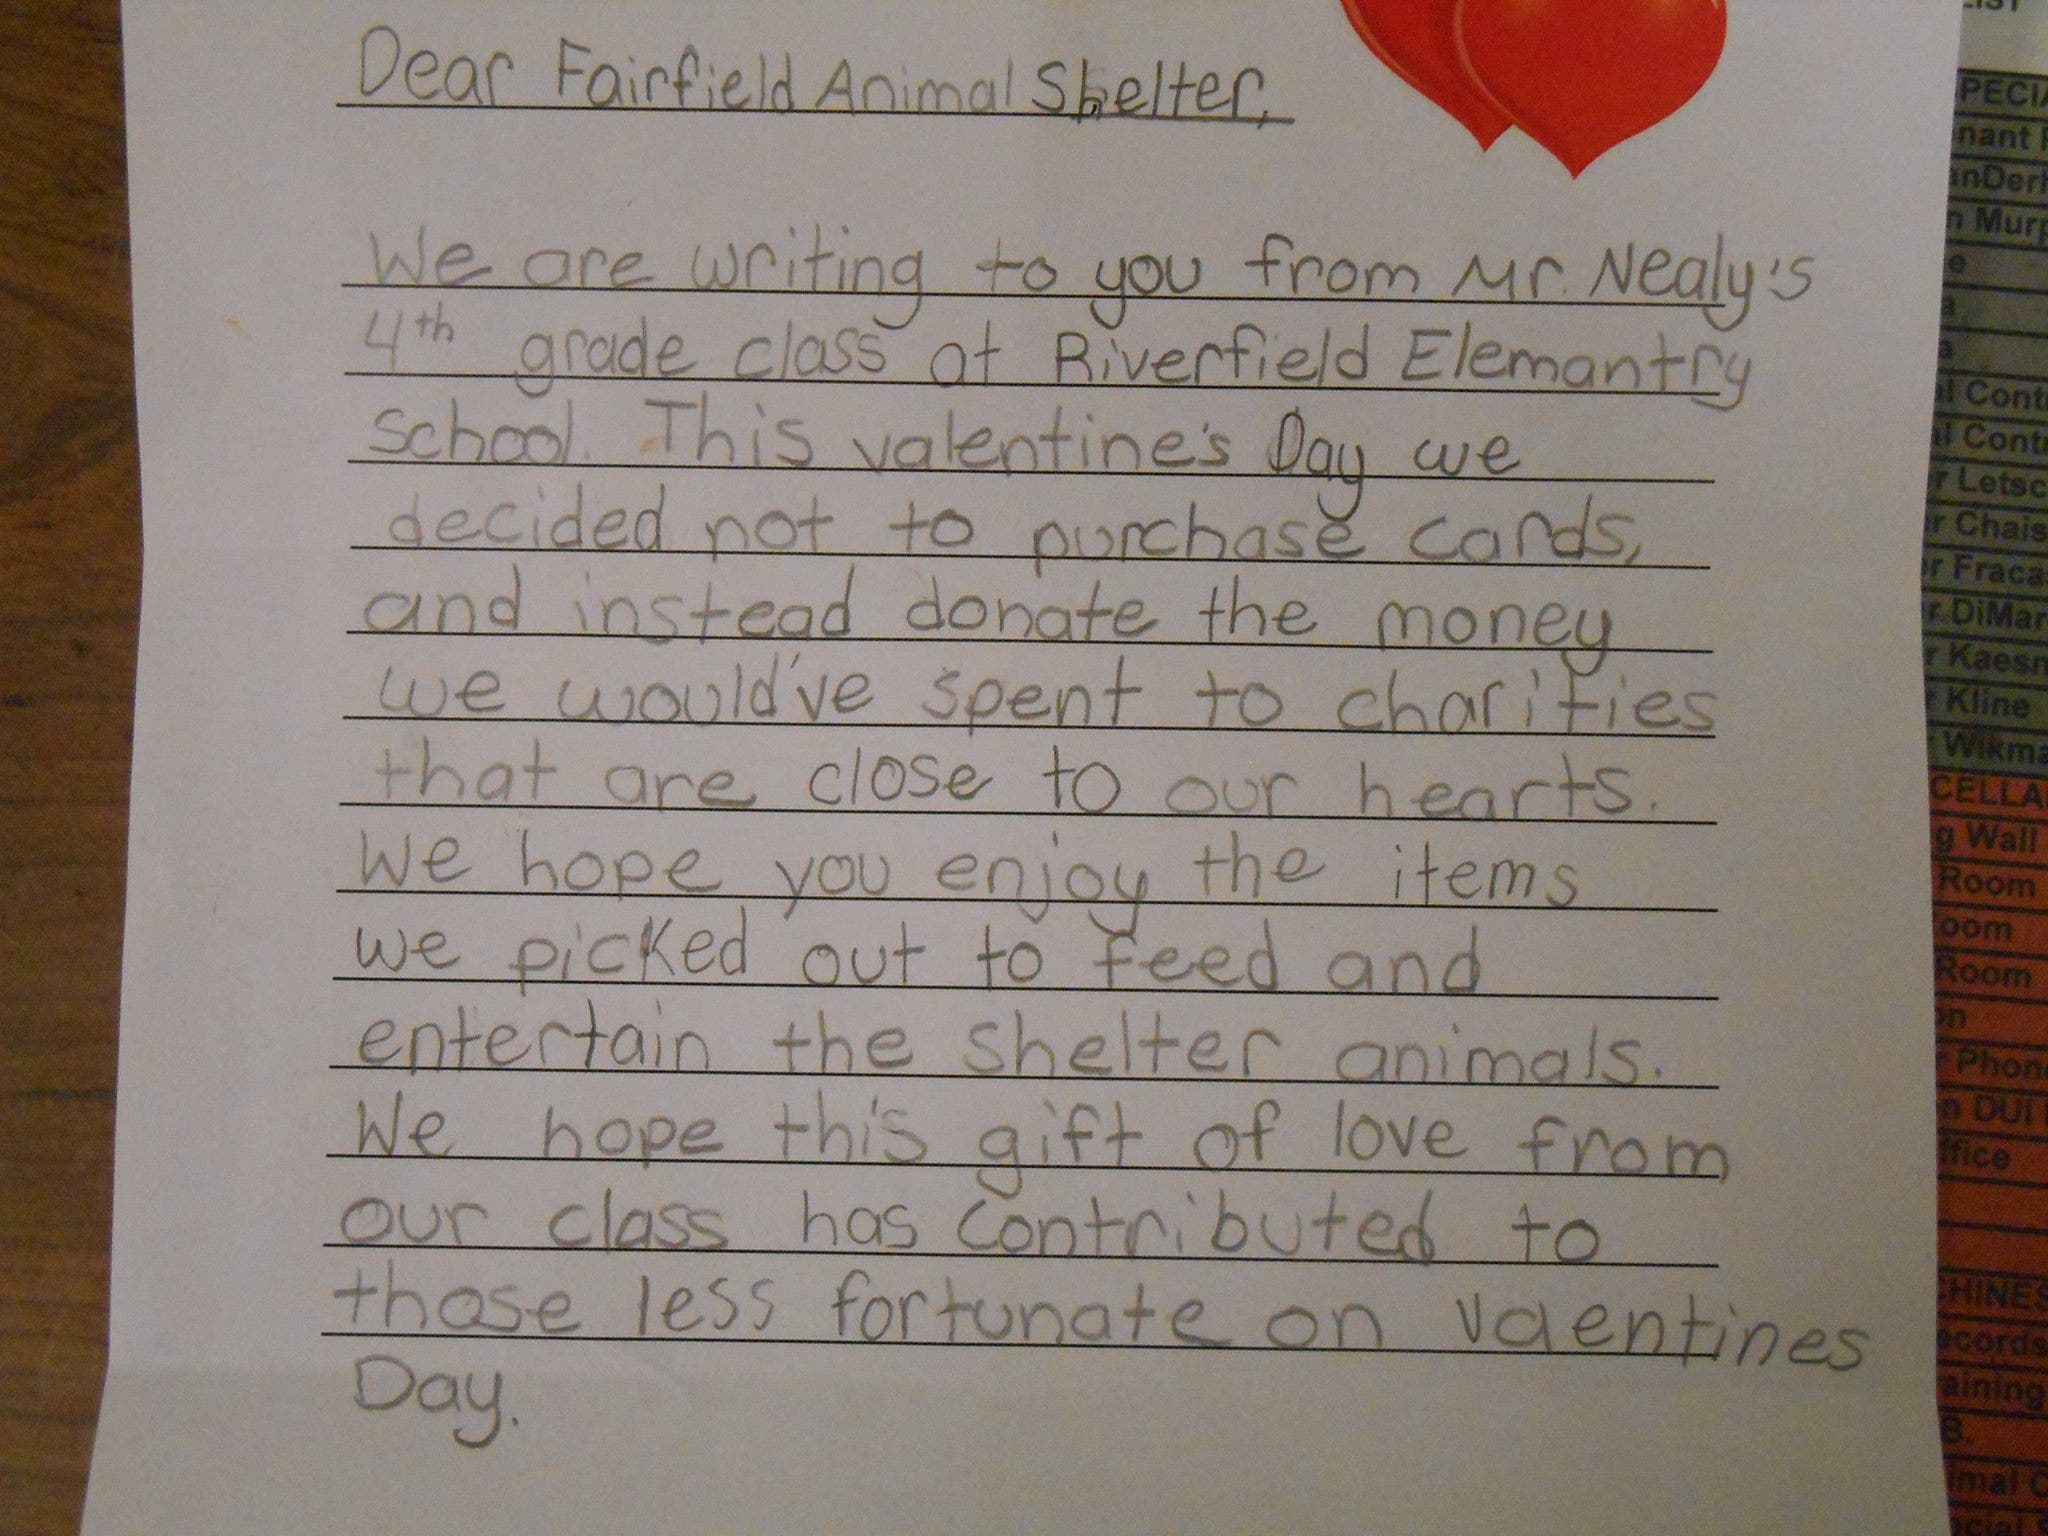 Dear Fairfield Animal Shelter,
We are writing to you from Mr. Nealy's
4th grade class at Riverfield Elemantry
school. This valentine's Day we
decided not to purchase cards,
and instead donate the money
we would've spent to charities
that are close to our hearts.
We hope you enjoy the items
we picked out to feed and
entertain the shelter animals.
We hope this gift of love from
our class has contributed to
those less fortunate on vaentines
Day.
Wall
Room
Room
Kaesn
Kline
Wikma
Letsc
Chais
Fraca
DiMar
Phon
DUI